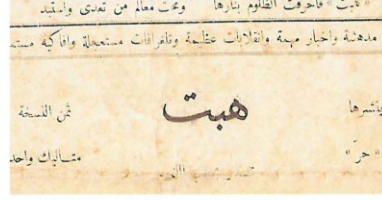 « هبت » فاحرقت الظلوم بنارها   ومحت معالم من تعدى واستبد
مدهشة واخبار مهمة وانقلابات عظيمة وتلغرافات مستعجلة وافاكيه
ينشرها   هبت   ثمن النسخة
« حر »   متاليك واحد